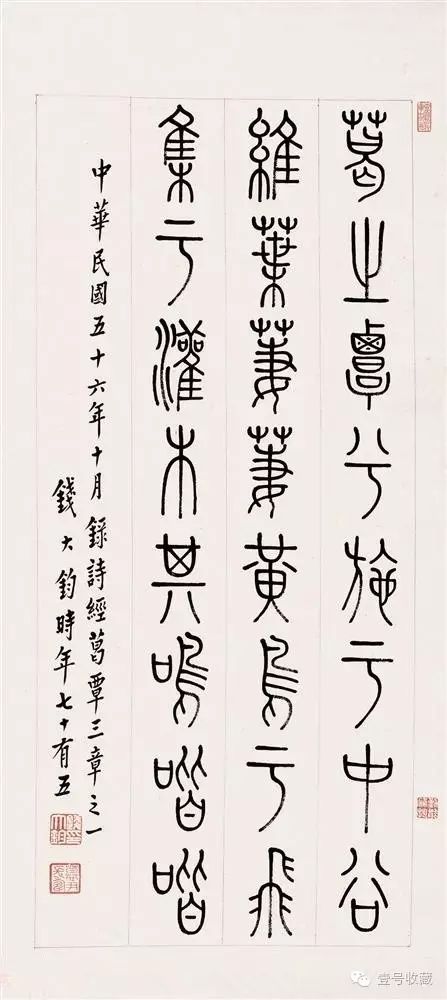 葛之覃兮施于中谷
維葉萋萋黃鳥于飛
集于灌木其鳴喈喈
中華民國五十六年十月錄詩經葛覃三章之一
錢大鈞時年七十有五
壹号收藏